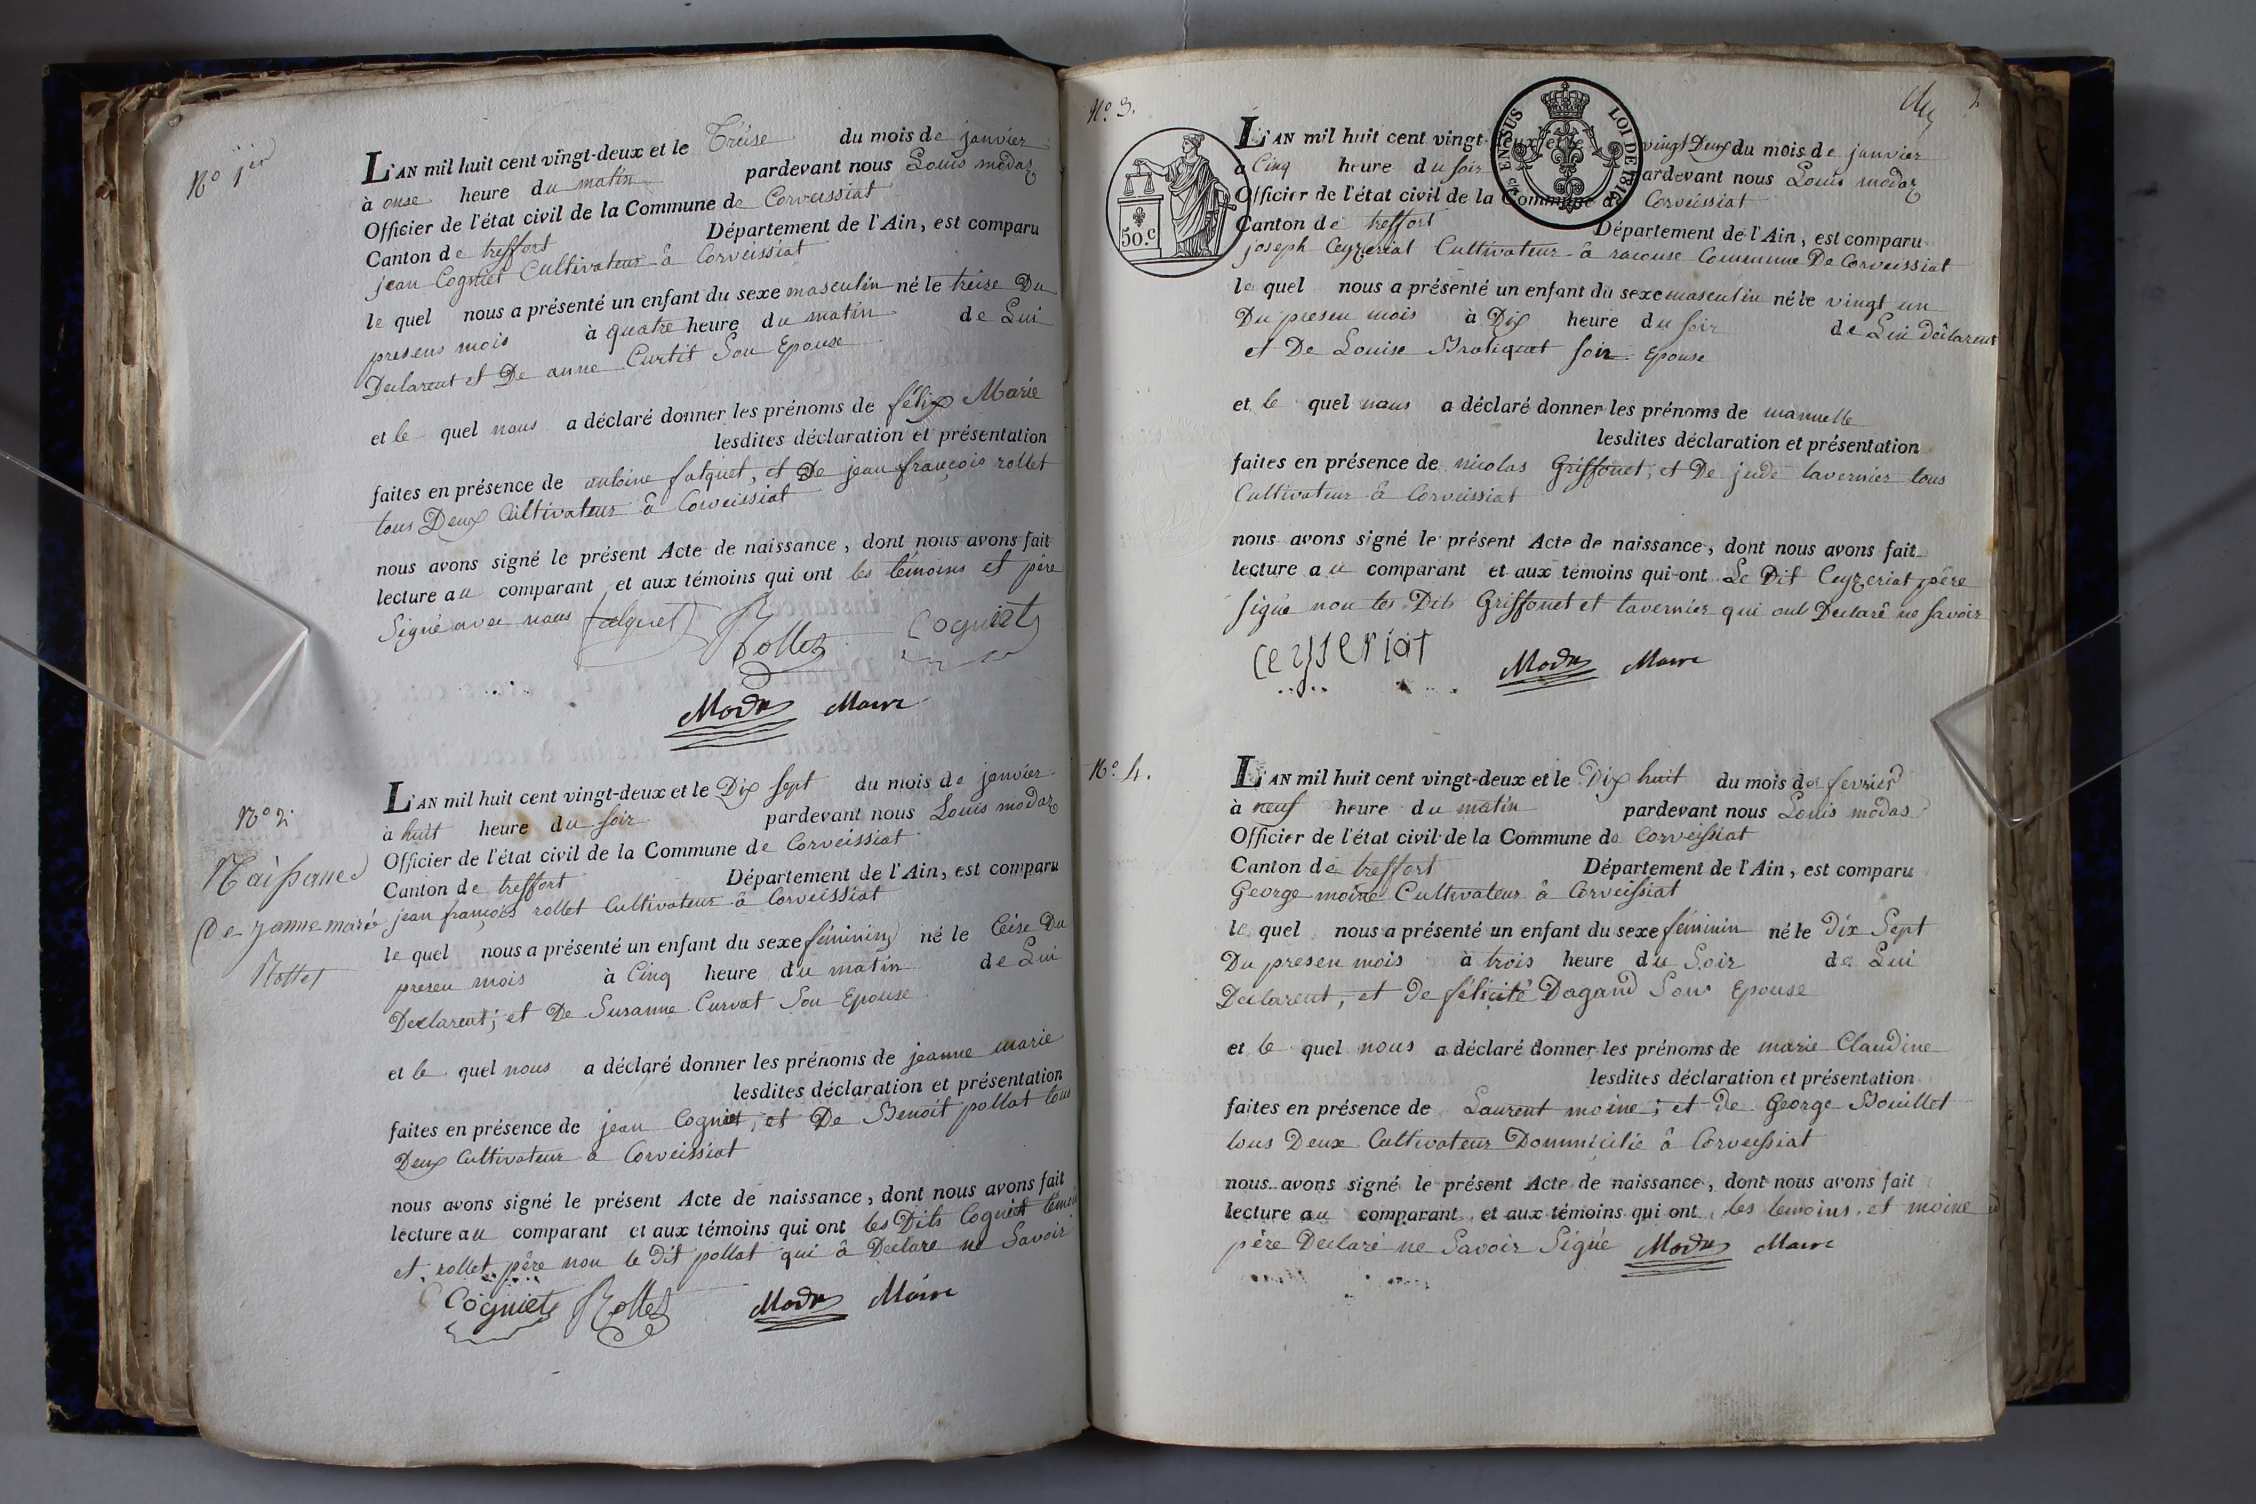 No 1er
L'AN mil huit cent vingt-deux et le Treise du mois de janvier
à onse heure du matin pardevant nous Louis modaz
Officier de l'état civil de la Commune de Corveissiat
Canton de treffort Département de l'Ain, est comparu
jean Cogniet Cultivateur à Corveissiat
le quel nous a présenté un enfant du sexe masculin né le treise Du
presens mois à quatre heure du matin de Lui
Declarent et De anne Curtit Son Epouse
et le quel nous a déclaré donner les prénoms de félix Marie
lesdites déclaration et présentation
faites en présence de antoine falquet, et De jean françois rollet
tous Deux Cultivateur à Corveissiat
nous avons signé le présent Acte de naissance, dont nous avons fait
lecture au comparant et aux témoins qui ont les témoins et père
Signé avec nous falquet Rollet Cogniet
Modas Maire
No 2
Naissance
De janne marie
Rollet
L'AN mil huit cent vingt-deux et le Dix sept du mois de janvier
à huit heure du soir pardevant nous Louis modaz
Officier de l'état civil de la Commune de Corveissiat
Canton de treffort Département de l'Ain, est comparu
jean françois rollet Cultivateur à Corveissiat
le quel nous a présenté un enfant du sexe féminin né le Seise Du
presen mois à Cinq heure du matin de Lui
Declarent; et De Susanne Curvat Son Epouse
et le quel nous a déclaré donner les prénoms de jeanne marie
lesdites déclaration et présentation
faites en présence de jean Cogniet, et De Benoit pollat tous
Deux Cultivateur à Corveissiat
nous avons signé le présent Acte de naissance, dont nous avons fait
lecture au comparant et aux témoins qui ont les Dits Cogniet témoin
et rollet père non le Dit pollat qui à Declare ne Savoir
Cogniet Rollet Modas Maire
No. 3.
50.c
EN SUS LOI DE 1816
L'AN mil huit cent vingt-deux et le vingt Deux du mois de janvier
à Cinq heure du soir pardevant nous Louis modaz
Officier de l'état civil de la Commune de Corveissiat
Canton de treffort Département de l'Ain, est comparu
joseph Ceyzeriat Cultivateur à racouse Commune De Corveissiat
le quel nous a présenté un enfant du sexe masculin né le vingt un
Du presen mois à Dix heure du soir de Lui Déclarent
et De Louise Broliquet son Epouse
et le quel nous a déclaré donner les prénoms de manuelle
lesdites déclaration et présentation
faites en présence de nicolas Griffonet, et De jude tavernier tous
Cultivateur à Corveissiat
nous avons signé le présent Acte de naissance, dont nous avons fait
lecture au comparant et aux témoins qui ont Le Dit Ceyzeriat père
signé non les Dits Griffonet et tavernier qui ont Declaré ne savoir
Ceyseriat Modas Maire
No. 4.
L'AN mil huit cent vingt-deux et le Dix huit du mois de fevrier
à neuf heure du matin pardevant nous Louis modas
Officier de l'état civil de la Commune de Corveissiat
Canton de treffort Département de l'Ain, est comparu
George moine Cultivateur à Corveissiat
le quel nous a présenté un enfant du sexe féminin né le Dix Sept
Du presen mois à trois heure du Soir de Lui
Declarent, et de félicité Dagand Son Epouse
et le quel nous a déclaré donner les prénoms de marie Claudine
lesdites déclaration et présentation
faites en présence de Laurent moine; et de George Bouillet
tous Deux Cultivateur Dommicilié à Corveissiat
nous avons signé le présent Acte de naissance, dont nous avons fait
lecture au comparant et aux témoins qui ont les temoins et moine
père Declaré ne Savoir Signé Modas Maire